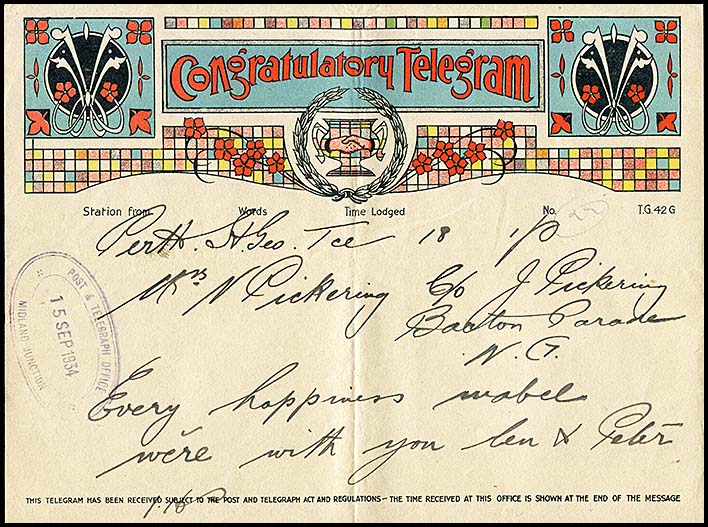 Congratulatory Telegram
Station from Words Time Lodged No. T.G. 42 G
22
Perth. St. Geo. Tce 18 1/p
Mrs N Pickering C/o J. Pickering
Barton Parade
POST & TELEGRAPH OFFICE
15 SEP 1934
MIDLAND JUNCTION
Every happiness mabel
we're with you len & Peter
THIS TELEGRAM HAS BEEN RECEIVED SUBJECT TO THE POST AND TELEGRAPH ACT AND REGULATIONS — THE TIME RECEIVED AT THIS OFFICE IS SHOWN AT THE END OF THE MESSAGE